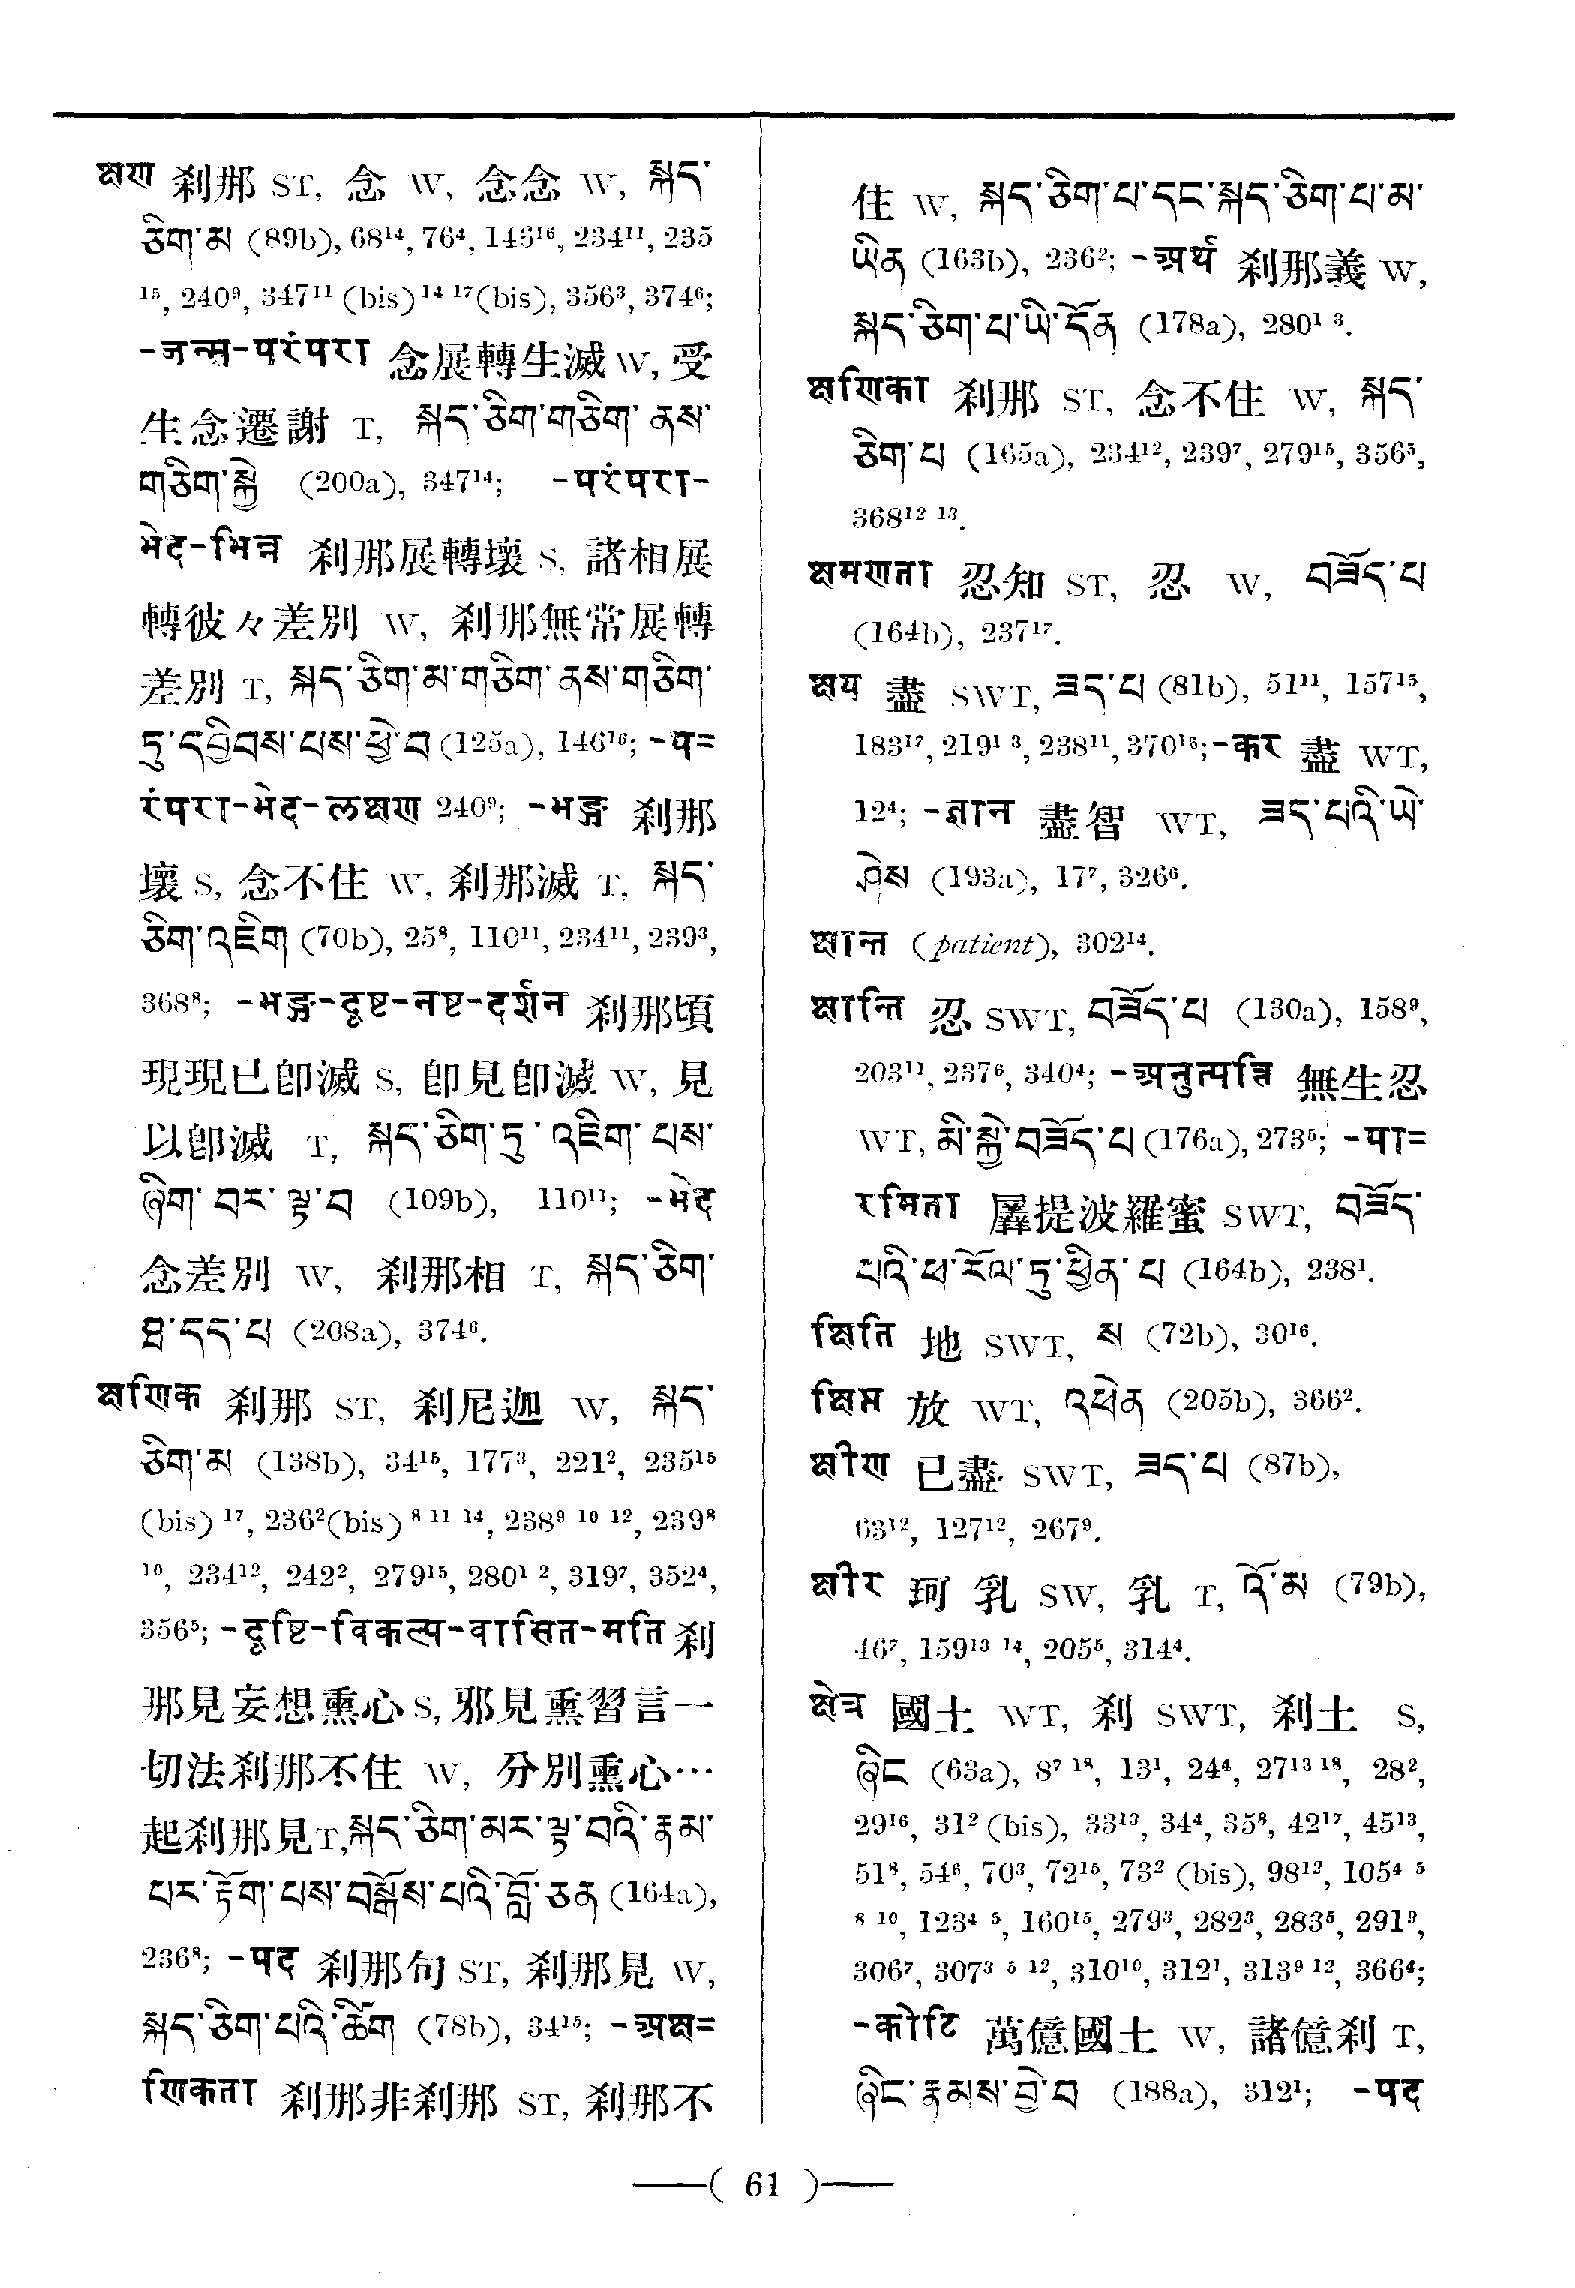 क्षण 刹那 ST, 念 W, 念念 W, སྐད་
ཅིག་མ (89b), 68¹⁴, 76⁴, 146¹⁶, 234¹¹, 235
¹⁵, 240⁹, 347¹¹ (bis) ¹⁴ ¹⁷(bis), 356³, 374⁶;
-जन्म-परंपरा 念展轉生滅 W, 受
生念遷謝 T, སྐད་ཅིག་གཅིག་ ནས་
གཅིག་སྐྱེ (200a), 347¹⁴; -परंपरा-
भेद-भिन्न 刹那展轉壞 S, 諸相展
轉彼々差別 W, 刹那無常展轉
差別 T, སྐད་ཅིག་མ་གཅིག་ ནས་གཅིག་
ཏུ་དབྱིབས་པས་ཕྱེ་བ (125a), 146¹⁶; -प=
रंपरा-भेद-लक्षण 240⁹; -भङ्ग 刹那
壞 S, 念不住 W, 刹那滅 T, སྐད་
ཅིག་འཇིག (70b), 25⁸, 110¹¹, 234¹¹, 239³,
368⁸; -भङ्ग-दृष्ट-नष्ट-दर्शन 刹那頃
現現已卽滅 S, 卽見卽滅 W, 見
以卽滅 T, སྐད་ཅིག་ཏུ་ འཇིག་ པས་
ཞིག་ བར་ ལྟ་བ (109b), 110¹¹; -भेद
念差別 W, 刹那相 T, སྐད་ཅིག་
ཐ་དད་པ (208a), 374⁶.
क्षणिक 刹那 ST, 刹尼迦 W, སྐད་
ཅིག་མ (138b), 34¹⁵, 177³, 221², 235¹⁵
(bis) ¹⁷, 236²(bis) ⁸ ¹¹ ¹⁴, 238⁹ ¹⁰ ¹², 239⁸
¹⁰, 234¹², 242², 279¹⁵, 280¹ ², 319⁷, 352⁴,
356⁵; -दृष्टि-विकल्प-वासित-मति 刹
那見妄想熏心 S, 邪見熏習言一
切法刹那不住 W, 分別熏心…
起刹那見 T, སྐད་ཅིག་མར་ལྟ་བའི་རྣམ་
པར་རྟོག་པས་བསྒོས་པའི་བློ་ཅན (164a),
236⁸; -पद 刹那句 ST, 刹那見 W,
སྐད་ཅིག་པའི་ཚིག (78b), 34¹⁵; -अक्ष=
णिकता 刹那非刹那 ST, 刹那不
住 W, སྐད་ཅིག་པ་དང་སྐད་ཅིག་པ་མ་
ཡིན (163b), 236²; -अर्थ 刹那義 W,
སྐད་ཅིག་པ་ཡི་དོན (178a), 280¹ ³.
क्षणिका 刹那 ST, 念不住 W, སྐད་
ཅིག་པ (165a), 234¹², 239⁷, 279¹⁵, 356⁵,
368¹² ¹³.
क्षमणता 忍知 ST, 忍 W, བཟོད་པ
(164b), 237¹⁷.
क्षय 盡 SWT, ཟད་པ (81b), 51¹¹, 157¹⁵,
183¹⁷, 219¹ ³, 238¹¹, 370¹⁵; -कर 盡 WT,
12⁴; -ज्ञान 盡智 WT, ཟད་པའི་ཡེ་
ཤེས (193a), 17⁷, 326⁶.
क्षान्त (patient), 302¹⁴.
क्षान्ति 忍 SWT, བཟོད་པ (130a), 158⁹,
203¹¹, 237⁶, 340⁴; -अनुत्पत्ति 無生忍
WT, མི་སྐྱེ་བཟོད་པ (176a), 273⁵; -पा=
रमिता 羼提波羅蜜 SWT, བཟོད་
པའི་ཕ་རོལ་ཏུ་ཕྱིན་པ (164b), 238¹.
क्षिति 地 SWT, ས (72b), 30¹⁶.
क्षिप्त 放 WT, འཕེན (205b), 366².
क्षीण 已盡 SWT, ཟད་པ (87b),
63¹², 127¹², 267⁹.
क्षीर 珂 乳 SW, 乳 T, འོ་མ (79b),
46⁷, 159¹³ ¹⁴, 205⁵, 314⁴.
क्षेत्र 國土 WT, 刹 SWT, 刹土 S,
ཞིང (63a), 8⁷ ¹⁸, 13¹, 24⁴, 27¹³ ¹⁸, 28²,
29¹⁶, 31² (bis), 33¹³, 34⁴, 35⁸, 42¹⁷, 45¹³,
51⁸, 54⁶, 70³, 72¹⁵, 73² (bis), 98¹², 105⁴ ⁵
⁸ ¹⁰, 123⁴ ⁵, 160¹⁵, 279³, 282³, 283⁵, 291⁹,
306⁷, 307³ ⁵ ¹², 310¹⁰, 312¹, 313⁹ ¹², 366⁴;
-कोटि 萬億國土 W, 諸億刹 T,
ཞིང་རྣམས་བྱེ་བ (188a), 312¹; -पद
( 61 )